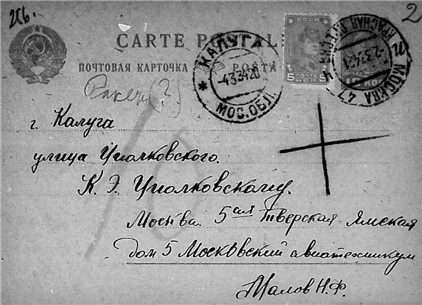 2
CARTE POSTALE
ПОЧТОВАЯ КАРТОЧКА
РОСТА
КАЛУГА
4334 20
МОС.ОБЛ.
5
МОСКВА 47
-2.3.4.21
г. Калуга
улица Циолковского.
К. Э. Циолковскому.
Москва. 5ая Тверская Ямская
дом 5 Московский авиатехникум
Малов Н.Ф.